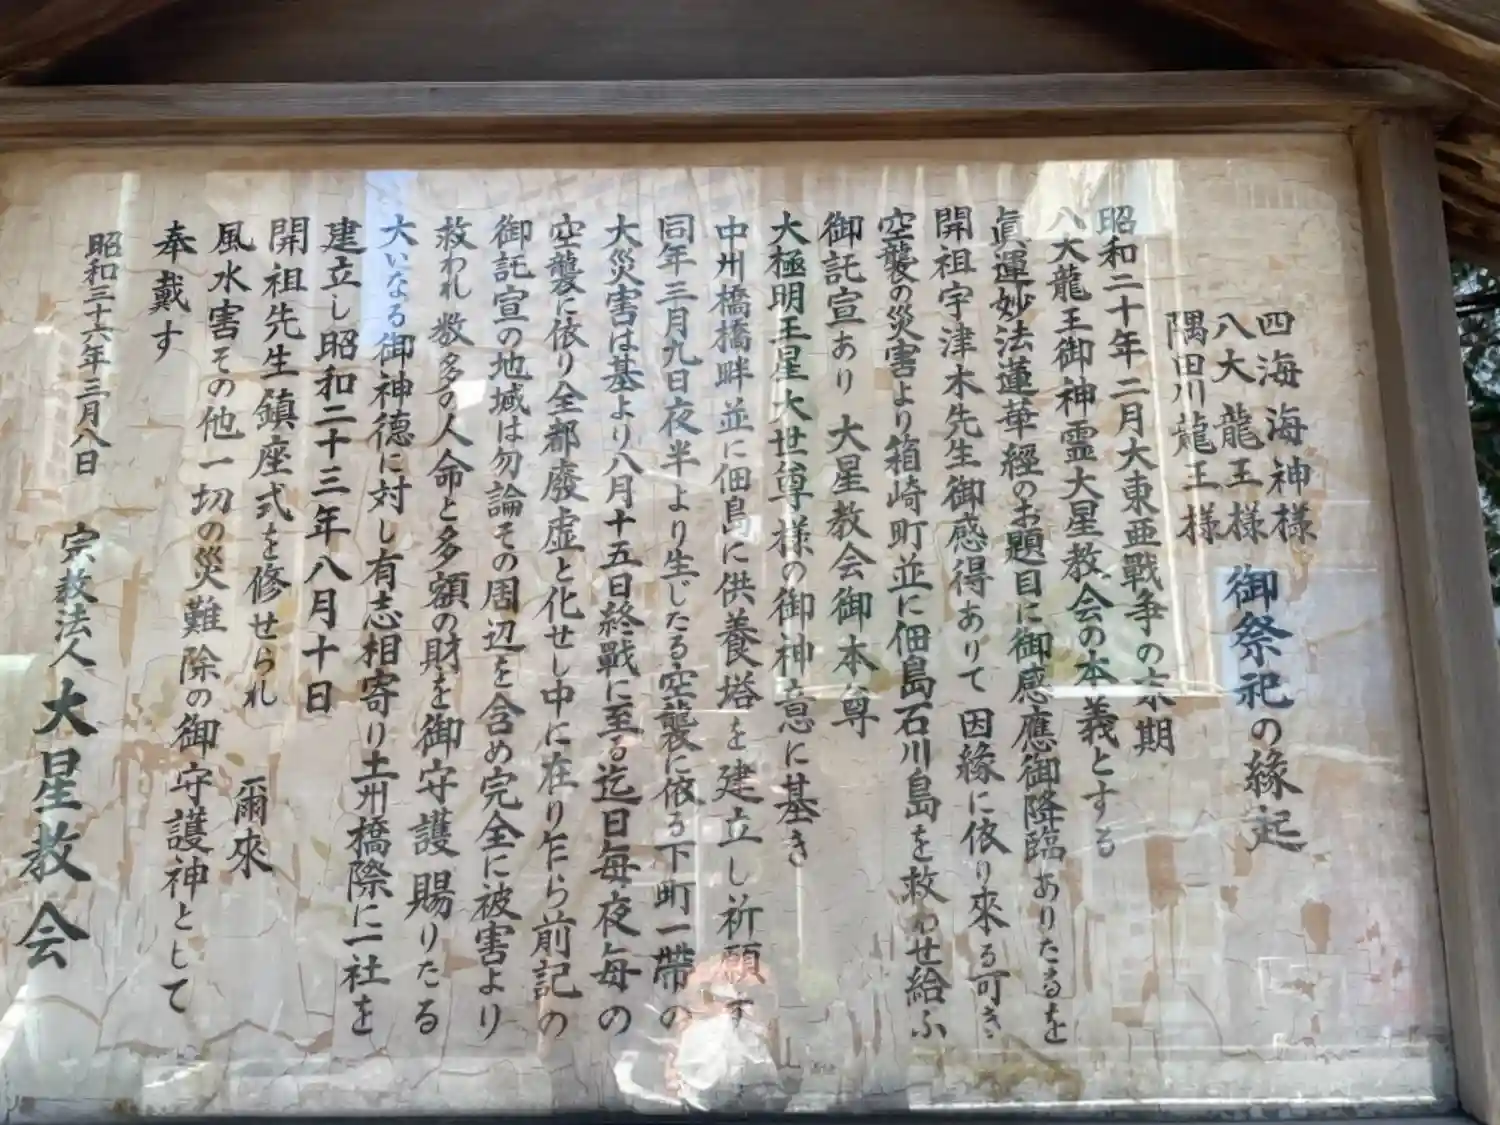 四海海神様
八大龍王様
隅田川龍王様
御祭祀の縁起
昭和二十年二月大東亜戦争の末期
八大龍王御神霊大星教会の本義とする
眞運妙法蓮華經のお題目に御感應御降臨ありたるを
開祖宇津木先生御感得ありて因緣に依り來る可き
空襲の災害より箱崎町並に佃島石川島を救わせ給ふ
御託宣あり 大星教会御本尊
大極明王星大世尊様の御神意に基き
中州橋橋畔並に佃島に供養塔を建立し祈願す
同年三月九日夜半より生じたる空襲に依る下町一帯の
大災害は基より八月十五日終戰に至る迄日毎夜毎の
空襲に依り全都廢虚と化せし中に在り乍ら前記の
御託宣の地域は勿論その周辺を含め完全に被害より
救われ数多の人命と多額の財を御守護賜りたる
大いなる御神德に対し有志相寄り土州橋際に二社を
建立し昭和二十三年八月十日
開祖先生鎮座式を修せられ 爾來
風水害その他一切の災難除の御守護神として
奉戴す
昭和三十六年三月八日
宗教法人 大星教会